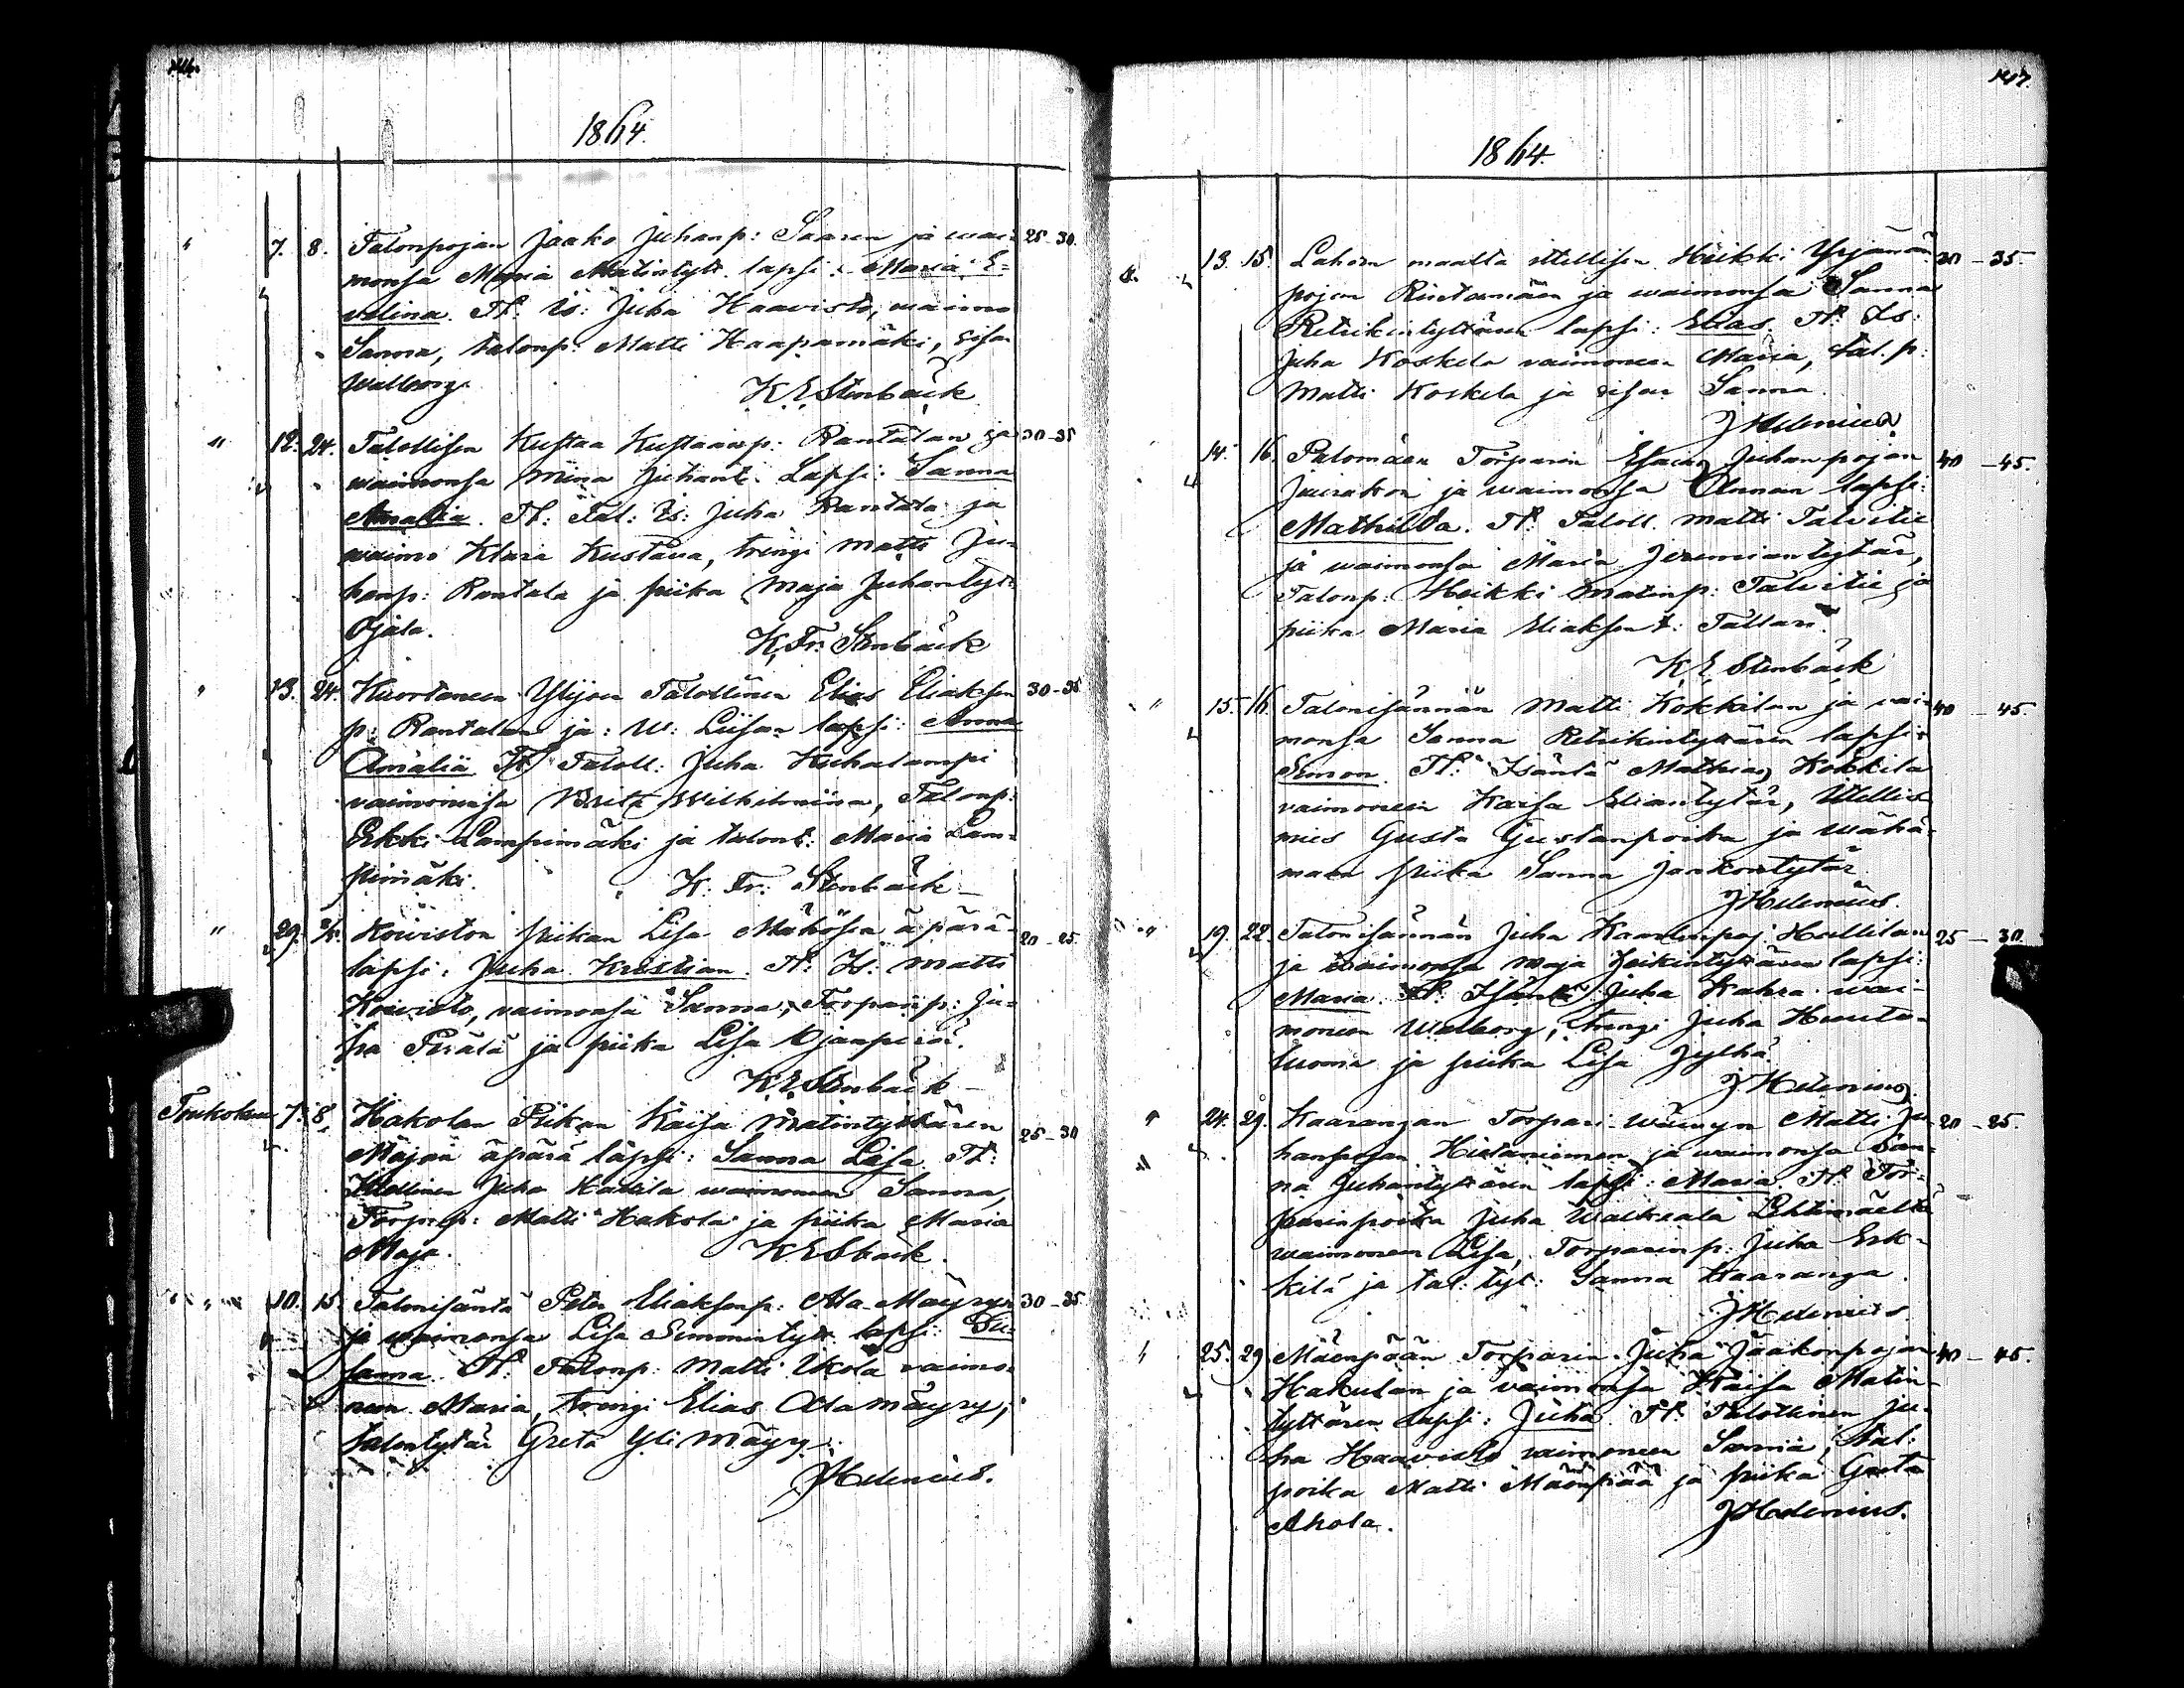 1864.
" 7. 8. Talonpojan Jaako Juhanp: Saaren ja wai= 25-30.
monsa Maria Matintytt. lapsi: Maria E=
velina. Tt. Is: Juha Haavisto, waimo
Sanna, talonp: Matti Haapamäki, sisar
Walborg.
K. E. Stenbäck
" 12. 24. Talollisen Kustaa Kustaanp: Rantalan ja 30-35
waimonsa Miina Juhant. Lapsi: Sanna
Amalia. Tt: Tal: Is: Juha Rantala ja
waimo Klara Kustava, trengi Matti Ju=
hanp: Rantala ja piika Maja Juhantyt:
Ojala.
K. Fr. Stenbäck
" 13. 24. Kuortaneen Ylijoen Talollinen Elias Eliaksen 30-35
p: Rantalan ja: W: Liisan lapsi: Anna
Amalia Tt: Taloll: Juha Kuhalampi
vaimoinensa Brita Wilhelmiina, Talonp:
Erkki Lampimäki ja talont: Maria Lam=
pimäki.
K. Fr: Stenbäck
" 29. Koiviston piikan Lisa äpärä 20-25.
lapsi: Juha Kristian. Tt: Is: Matti
Koivisto, vaimonsa Sanna, Torparip: Ju=
ha Perälä ja piika Lisa Ojanperä.
K. E. Stenbäck
Toukokuu 7. 8. Hakolan Piikan Kaisa Matintyttären 25-30
Majan äpärä lapsi: Sanna Lisa. Tt:
Itellinen Juha waimoneen Sanna,
Torp:p: Matti Hakola ja piika Maria
Maja.
K E Sbäck.
" 10. 15. Talonisäntä Peter Eliaksenp: Ala-Mäyryn 30-35.
ja waimonsa Lisa Simmintytt. lapsi: Su=
sanna. Tt: Talonp: Matti Ukola vaimo=
neen Maria, trengi Elias Alamäyry,
talontytär Greta Ylimäyry.
J Helenius.
147.
1864.
13. 15. Lahden maalta itellisen Heikki Yrjänän 30-35.
pojan Rintamäen ja waimonsa Sanna
Retrikintyttären lapsi: Elias. Tt. Is:
Juha Koskela vaimoneen Maria, tal.p:
Matti Koskela ja sisar Sanna.
J Helenius
14. 16. Palomäen Torparin Esaias Juhanpojan 40-45.
Juurakon ja waimonsa Annan lapsi:
Mathilda. Tt. Taloll. Matti Talvitie
ja waimonsa Maria Jeremiantytär,
Talonp: Heikki Matinp: Talvitie ja
piika Maria Eliaksent: Tallari.
K. E. Stenbäck
" 15. 16. Talonisännän Matti Kokkilan ja vai= 40-45.
monsa Sanna Retrikintyttären lapsi:
Simon. Tt: Isäntä Mathias Kokkila
vaimoneen Kaisa Eliantytär, Itellis
mies Gusta Gustanpoika ja wähä=
maan piika Sanna Jaakontytär
J Helenius.
" 19. 22. Talonisännän Juha Kaarlenpoj. Hallilan 25-30.
ja waimonsa Maja Heikintyttären lapsi:
Maria. Tt: Isäntä Juha Kahra wai=
moneen Walborg, trengi Juha Huuta=
luoma ja piika Lisa Jylhä.
J Helenius
" 24. 29. Kaarangan Torpari-wäwyn Matti Ju 20-25.
hanpojan Hietaniemen ja waimonsa San=
na Juhantyttären lapsi: Maria. Tt. Tor=
parinpoika Juha Walkiala Lehtimäeltä
waimoneen Lisa, Torparinp: Juha Erk=
kilä ja tal: tyt: Sanna Kaaranga.
J Helenius.
" 25. 29. Mäenpään Torparin Juha Jaakonpojan 40-45.
Hakulan ja vaimonsa Kaisa Matin=
tyttären lapsi: Juha. Tt: Talollinen Ju=
ha Haavisto vaimoneen Sanna, Tal:
poika Matti Mäenpää ja piika Greta
Ahola.
J Helenius.